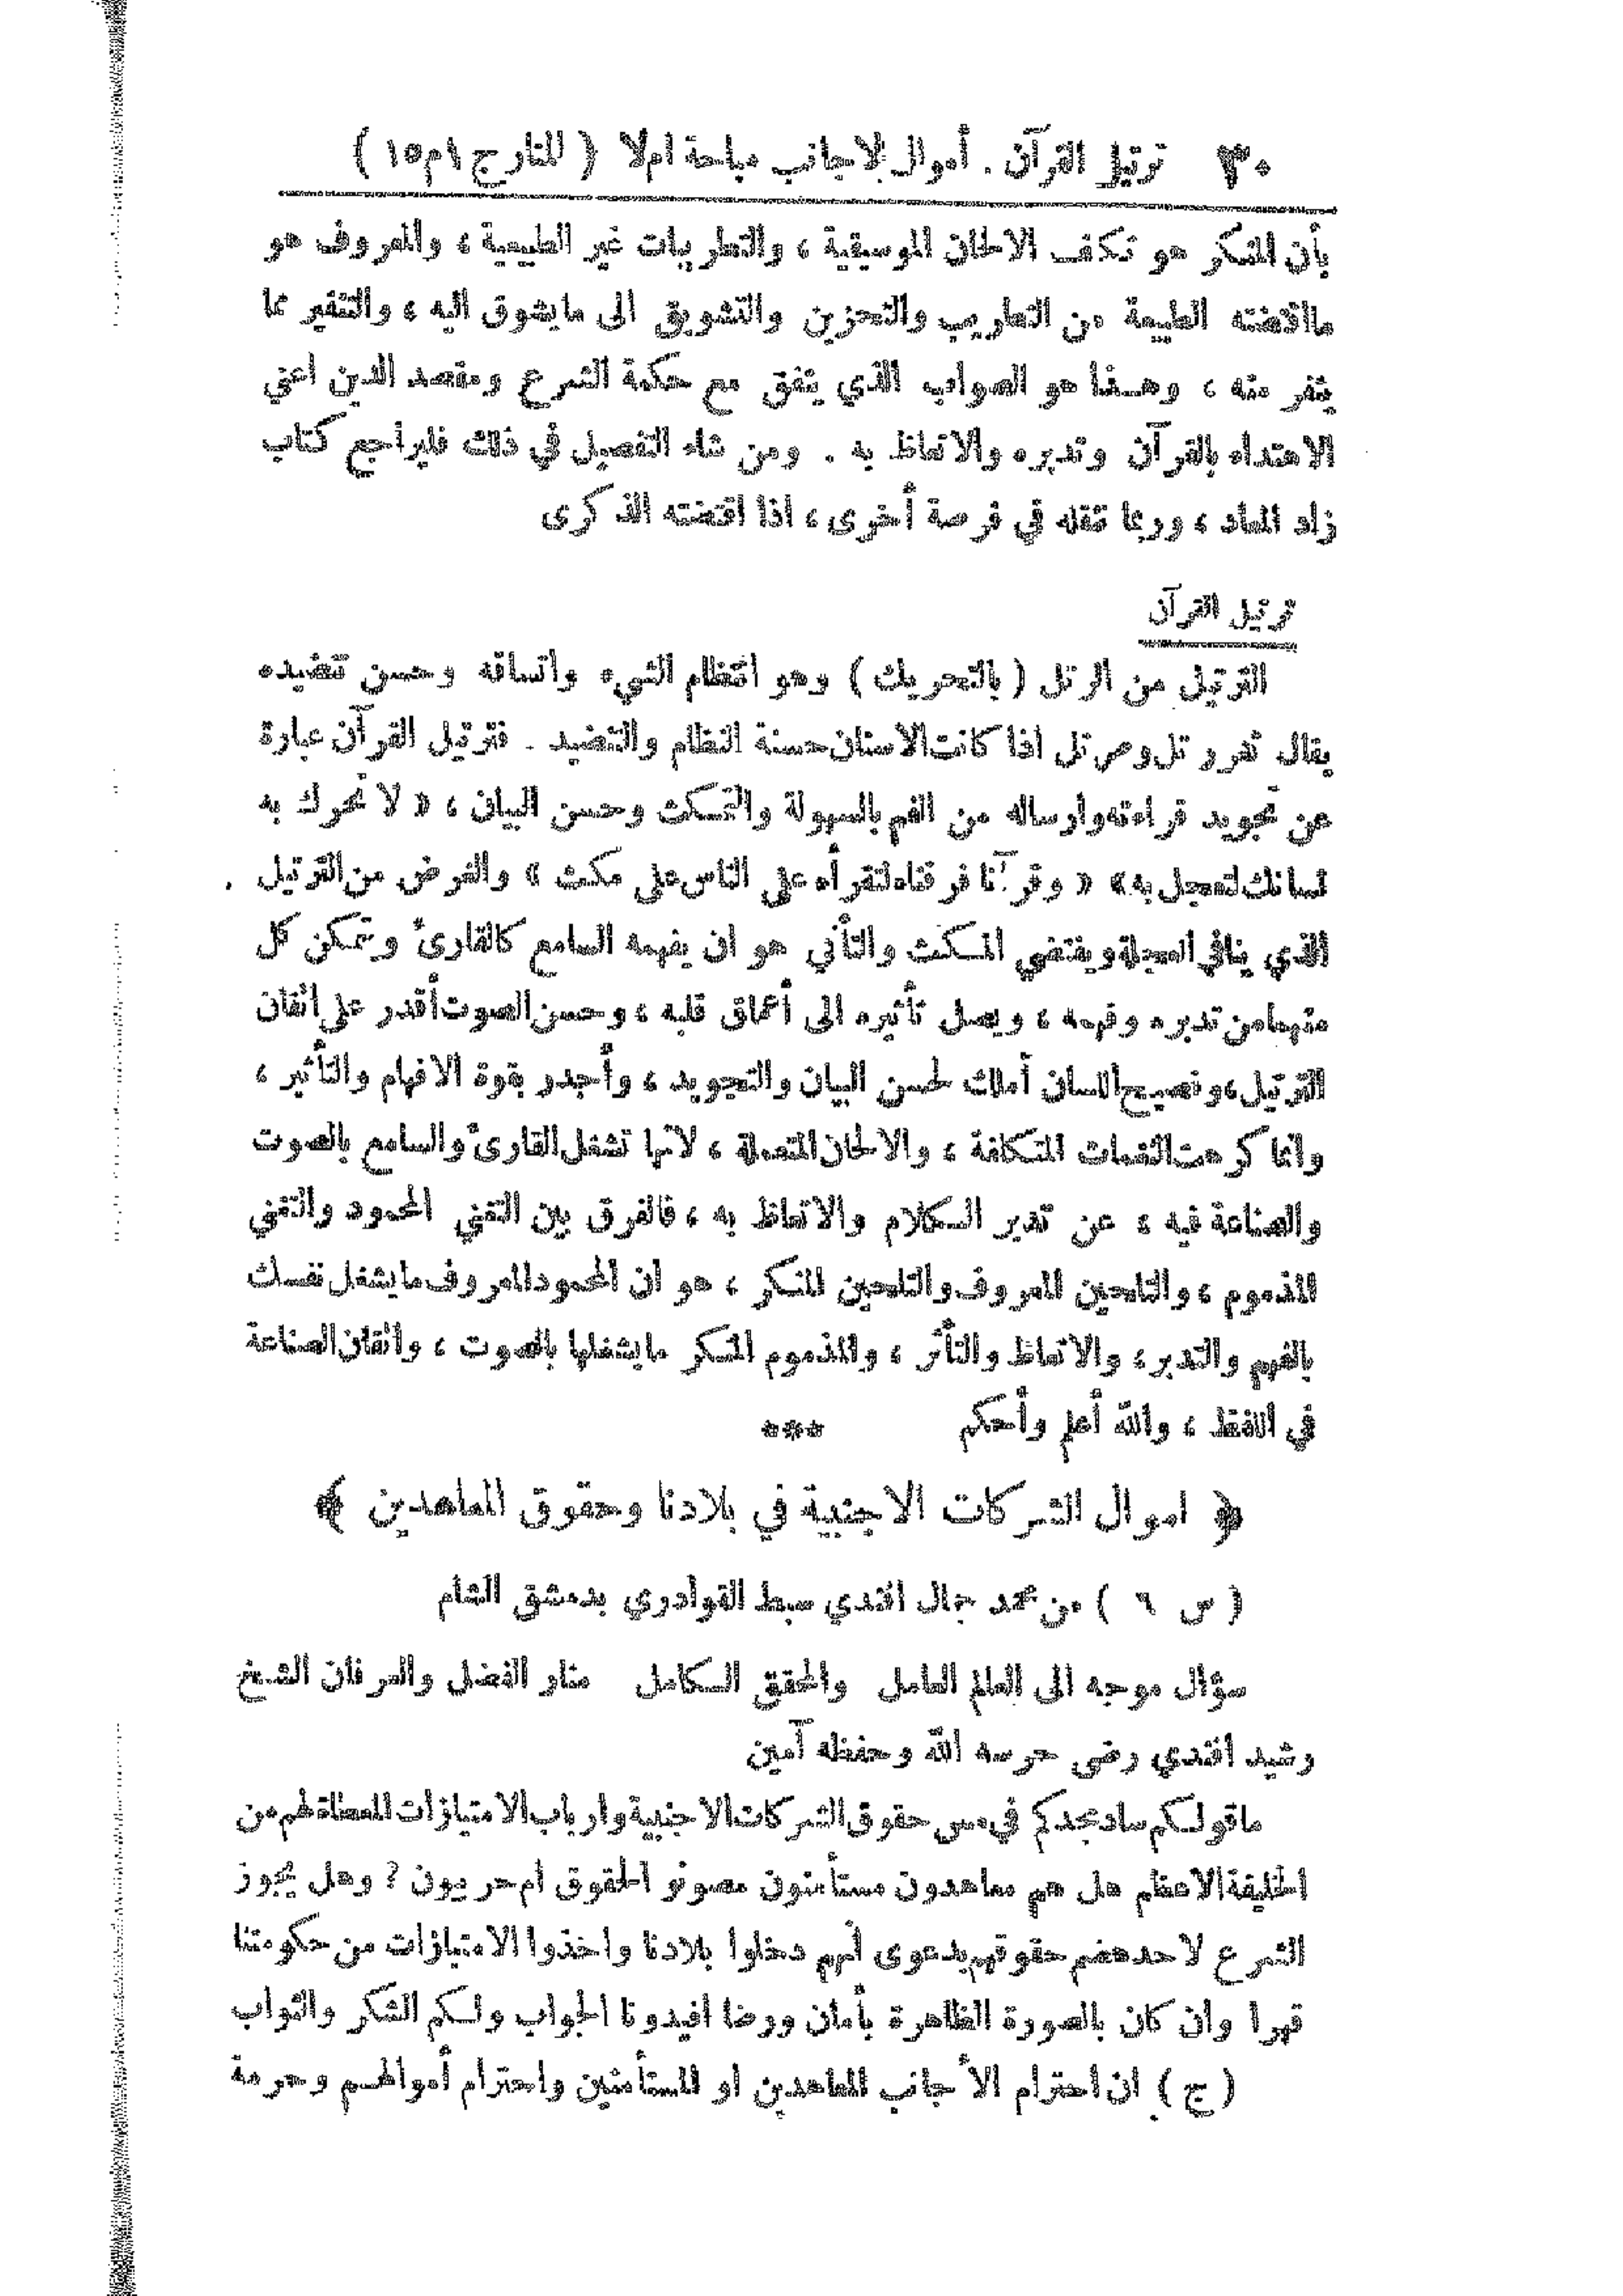 ٣٠ ترتيل القرآن . أموال الاجانب مباحة ام لا ( المنار ج ١ م ١٥ )
بأن المنكر هو تكلف الالحان الموسيقية ، والتطريبات غير الطبيعية ، والمعروف هو
ما اقتضته الطبيعة من التطريب والتحزين والتشويق الى ما يشوق اليه ، والتنفير مما
ينفر منه ، وهذا هو الصواب الذي يتفق مع حكمة الشرع ومقصد الدين اعني
الاهتداء بالقرآن وتدبره والاتعاظ به . ومن شاء التفصيل في ذلك فليراجع كتاب
زاد المعاد ، وربما ننقله في فرصة أخرى ، اذا اقتضته الذكرى
ترتيل القرآن
الترتيل من الرتل ( بالتحريك ) وهو انتظام الشيء واتساقه وحسن تنضيده
يقال ثغر رتل ومرتل اذا كانت الاسنان حسنة النظام والتنضيد . فترتيل القرآن عبارة
عن تجويد قراءته وارساله من الفم بالسهولة والتمكث وحسن البيان ، « لا تحرك به
لسانك لتعجل به » « وقرآنا فرقناه لتقرأه على الناس على مكث » والغرض من الترتيل
الذي ينافي العجلة ويقتضي المكث والتأني هو ان يفهمه السامع كالقارئ ويتمكن كل
منهما من تدبره وفهمه ، ويصل تأثيره الى أعماق قلبه ، وحسن الصوت أقدر على اتقان
الترتيل ، وفصيح اللسان أملك لحسن البيان والتجويد ، وأجدر بقوة الافهام والتأثير ،
وانما كرهت النغمات المتكلفة ، والالحان المتعملة ، لانها تشغل القارئ والسامع بالصوت
والصناعة فيه ، عن تدبر الكلام والاتعاظ به ، فالفرق بين التغني المحمود والتغني
المذموم ، والتلحين المعروف والتلحين المنكر ، هو ان المحمود المعروف ما يشغل نفسك
بالفهم والتدبر ، والاتعاظ والتأثر ، والمذموم المنكر ما يشغلها بالصوت ، واتقان الصناعة
في اللفظ ، والله أعلم وأحكم ***
﴿ اموال الشركات الاجنبية في بلادنا وحقوق المعاهدين ﴾
( س ٦ ) من محمد جمال افندي سبط القوادري بدمشق الشام
سؤال موجه الى العالم العامل والمحقق الكامل منار الفضل والعرفان الشيخ
رشيد افندي رضى حرسه الله وحفظه آمين
ما قولكم ساد مجدكم في مس حقوق الشركات الاجنبية وارباب الامتيازات المعطاة لهم من
الخليفة الاعظم هل هم معاهدون مستأمنون مصونو الحقوق ام حربيون ? وهل يجوز
الشرع لاحد هضم حقوقهم بدعوى أنهم دخلوا بلادنا واخذوا الامتيازات من حكومتنا
قهرا وان كان بالصورة الظاهرة بأمان ورضا افيدونا الجواب ولكم الشكر والثواب
( ج ) ان احترام الأجانب المعاهدين او المستأمنين واحترام أموالهم وحرمة